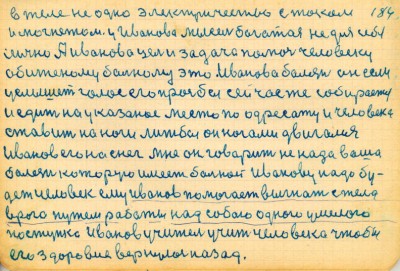 в теле не одно электричество с током 184.
и магнетом. у Иванова милеен богатая не для себя
лично А Иванова цел и задача помоч человеку
обиженому болному это Иванова болян он если
услышет голос его прозби сейчас те собирает
и едит на указаное место по адресату и человека
ставит на ноги лиш бы он ногами двигался
Иванов его на снег мне он говарит не нада ваша
болезн которую имеет болной Иванову надо бу-
дет человек ему Иванов помогает выгнат с тела
врага путем работы над собою одного умелого
поступка Иванов учител учит человека чтобы
его здоровие вернулос назад.